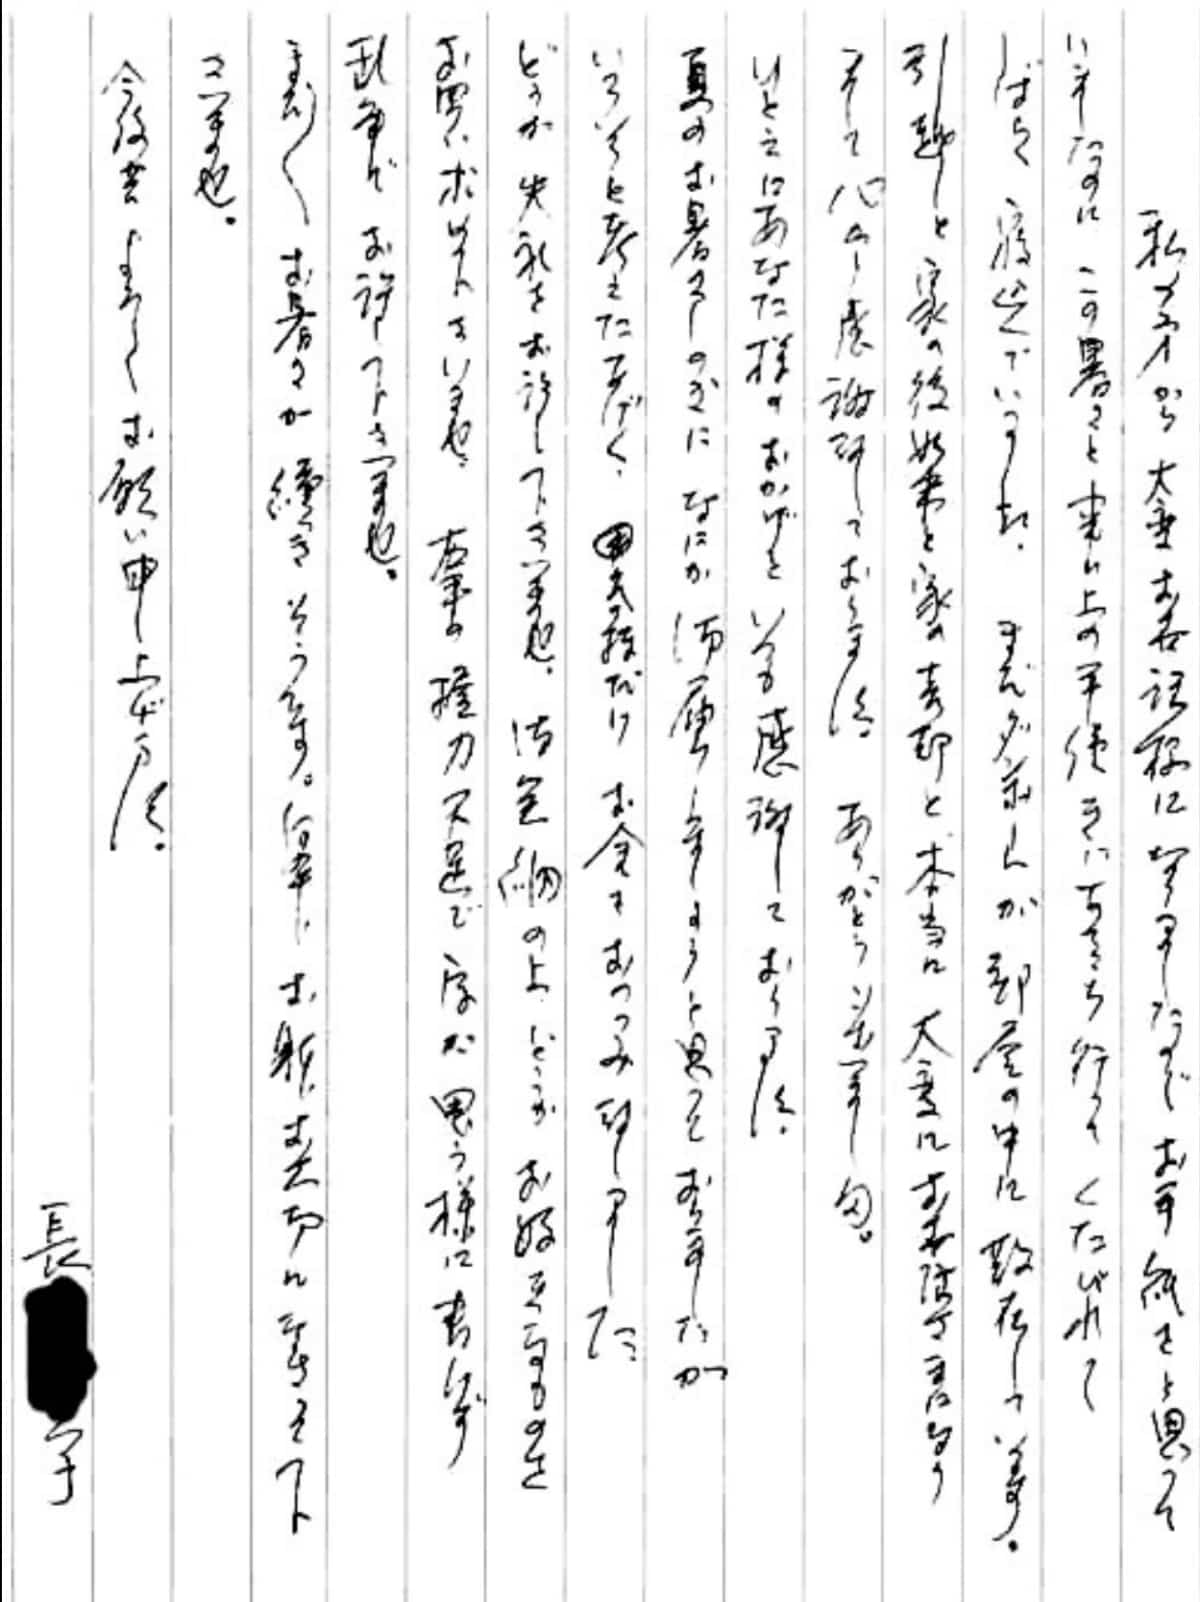 私の方から大変お世話様になりましたので お手紙をと思って
いましたのに この暑さと 年のくたびれて
ばらく寝込んでいました。まだダンボールが部屋の中に散在しています。
引越しと家の後始末と家の売却と本当に大変にお世話様になり
まして心から感謝致しております。ありがとうございます。
ひとえにあなた様のおかげといつも感謝しております。
夏のお暑さしのぎに なにか御届けしましょうと思っておりましたが
いろいろと考えたあげく、お金をおつつみ致しました。
どうか失礼をお許し下さいませ。御笑納の上 どうか お好きなものを
お買いお求め下さいませ。右手の握力不足で字が思う様に書けず
乱筆でお許し下さいませ。
まだしばらくお暑さが続きそうです。何卒お身お大切になさって下
さいませ。
今後共よろしくお願い申し上げます。
長 子